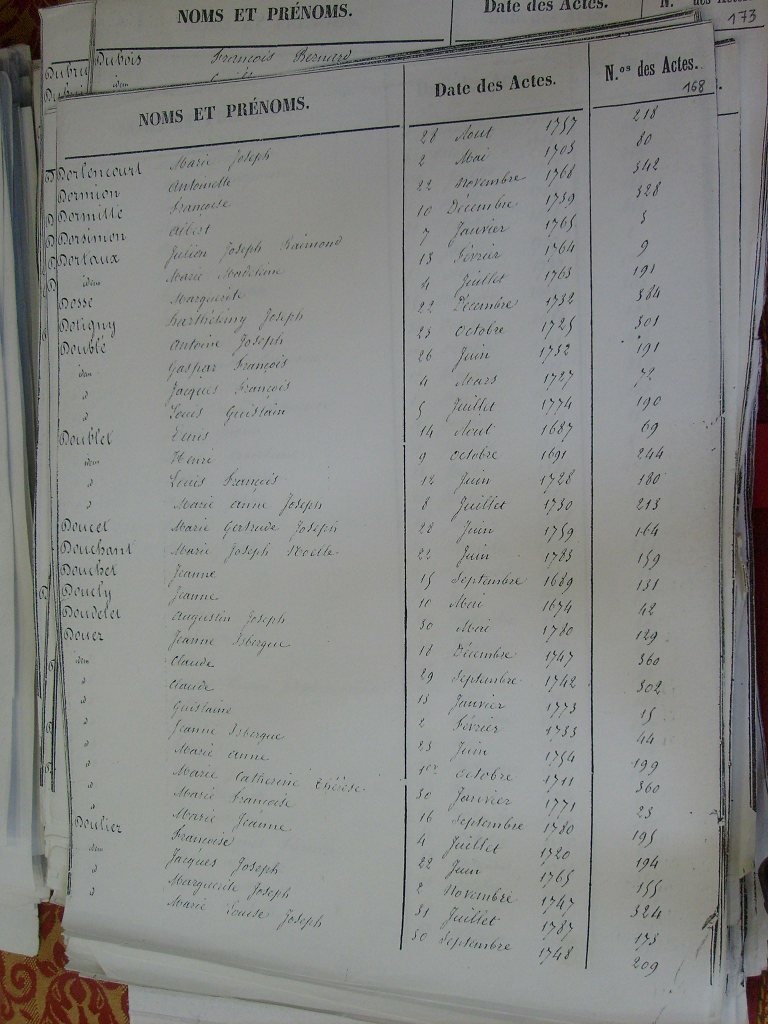 NOMS ET PRÉNOMS. Date des Actes. 173
Dubois François Bernard
NOMS ET PRÉNOMS. Date des Actes. N.os des Actes. 168
Dorlencourt Marie Joseph 28 Aout 1757 218
Dormion Antoinette 2 Mai 1703 80
Dormille Françoise 22 Novembre 1768 342
Dorsimon Albert 10 Décembre 1739 328
Dortaux Julien Joseph Raimond 7 Janvier 1765 3
idem Marie Madeleine 13 Février 1764 9
Dosse Marguerite 4 Juillet 1763 191
Dotigny Barthélémy Joseph 22 Décembre 1732 384
Doublé Antoine Joseph 23 Octobre 1725 301
idem Gaspar François 26 Juin 1732 191
d Jacques François 4 Mars 1727 72
d Louis Guislain 5 Juillet 1774 190
Doublet Denis 14 Aout 1687 69
idem Henri 9 Octobre 1691 244
d Louis François 12 Juin 1728 180
d Marie Anne Joseph 8 Juillet 1730 213
Doucet Marie Gertrude Joseph 28 Juin 1759 164
Douchant Marie Joseph Noelle 22 Juin 1783 159
Douchet Jeanne 15 Septembre 1689 131
Douchy Jeanne 10 Mai 1674 42
Doudelet Augustin Joseph 30 Mai 1780 129
Douez Jeanne Isbergue 18 Décembre 1747 360
idem Claude 29 Septembre 1742 302
d Claude 13 Janvier 1773 15
d Guislaine 2 Février 1733 44
d Jeanne Isbergue 23 Juin 1754 199
d Marie Anne 1er Octobre 1711 360
d Marie Catherine Thérèse 30 Janvier 1771 23
d Marie Françoise 16 Septembre 1780 195
d Marie Jeanne 4 Juillet 1720 194
Doulier Françoise 22 Juin 1765 155
idem Jacques Joseph 2 Novembre 1747 324
d Marguerite Joseph 31 Juillet 1787 173
d Marie Louise Joseph 30 Septembre 1748 209